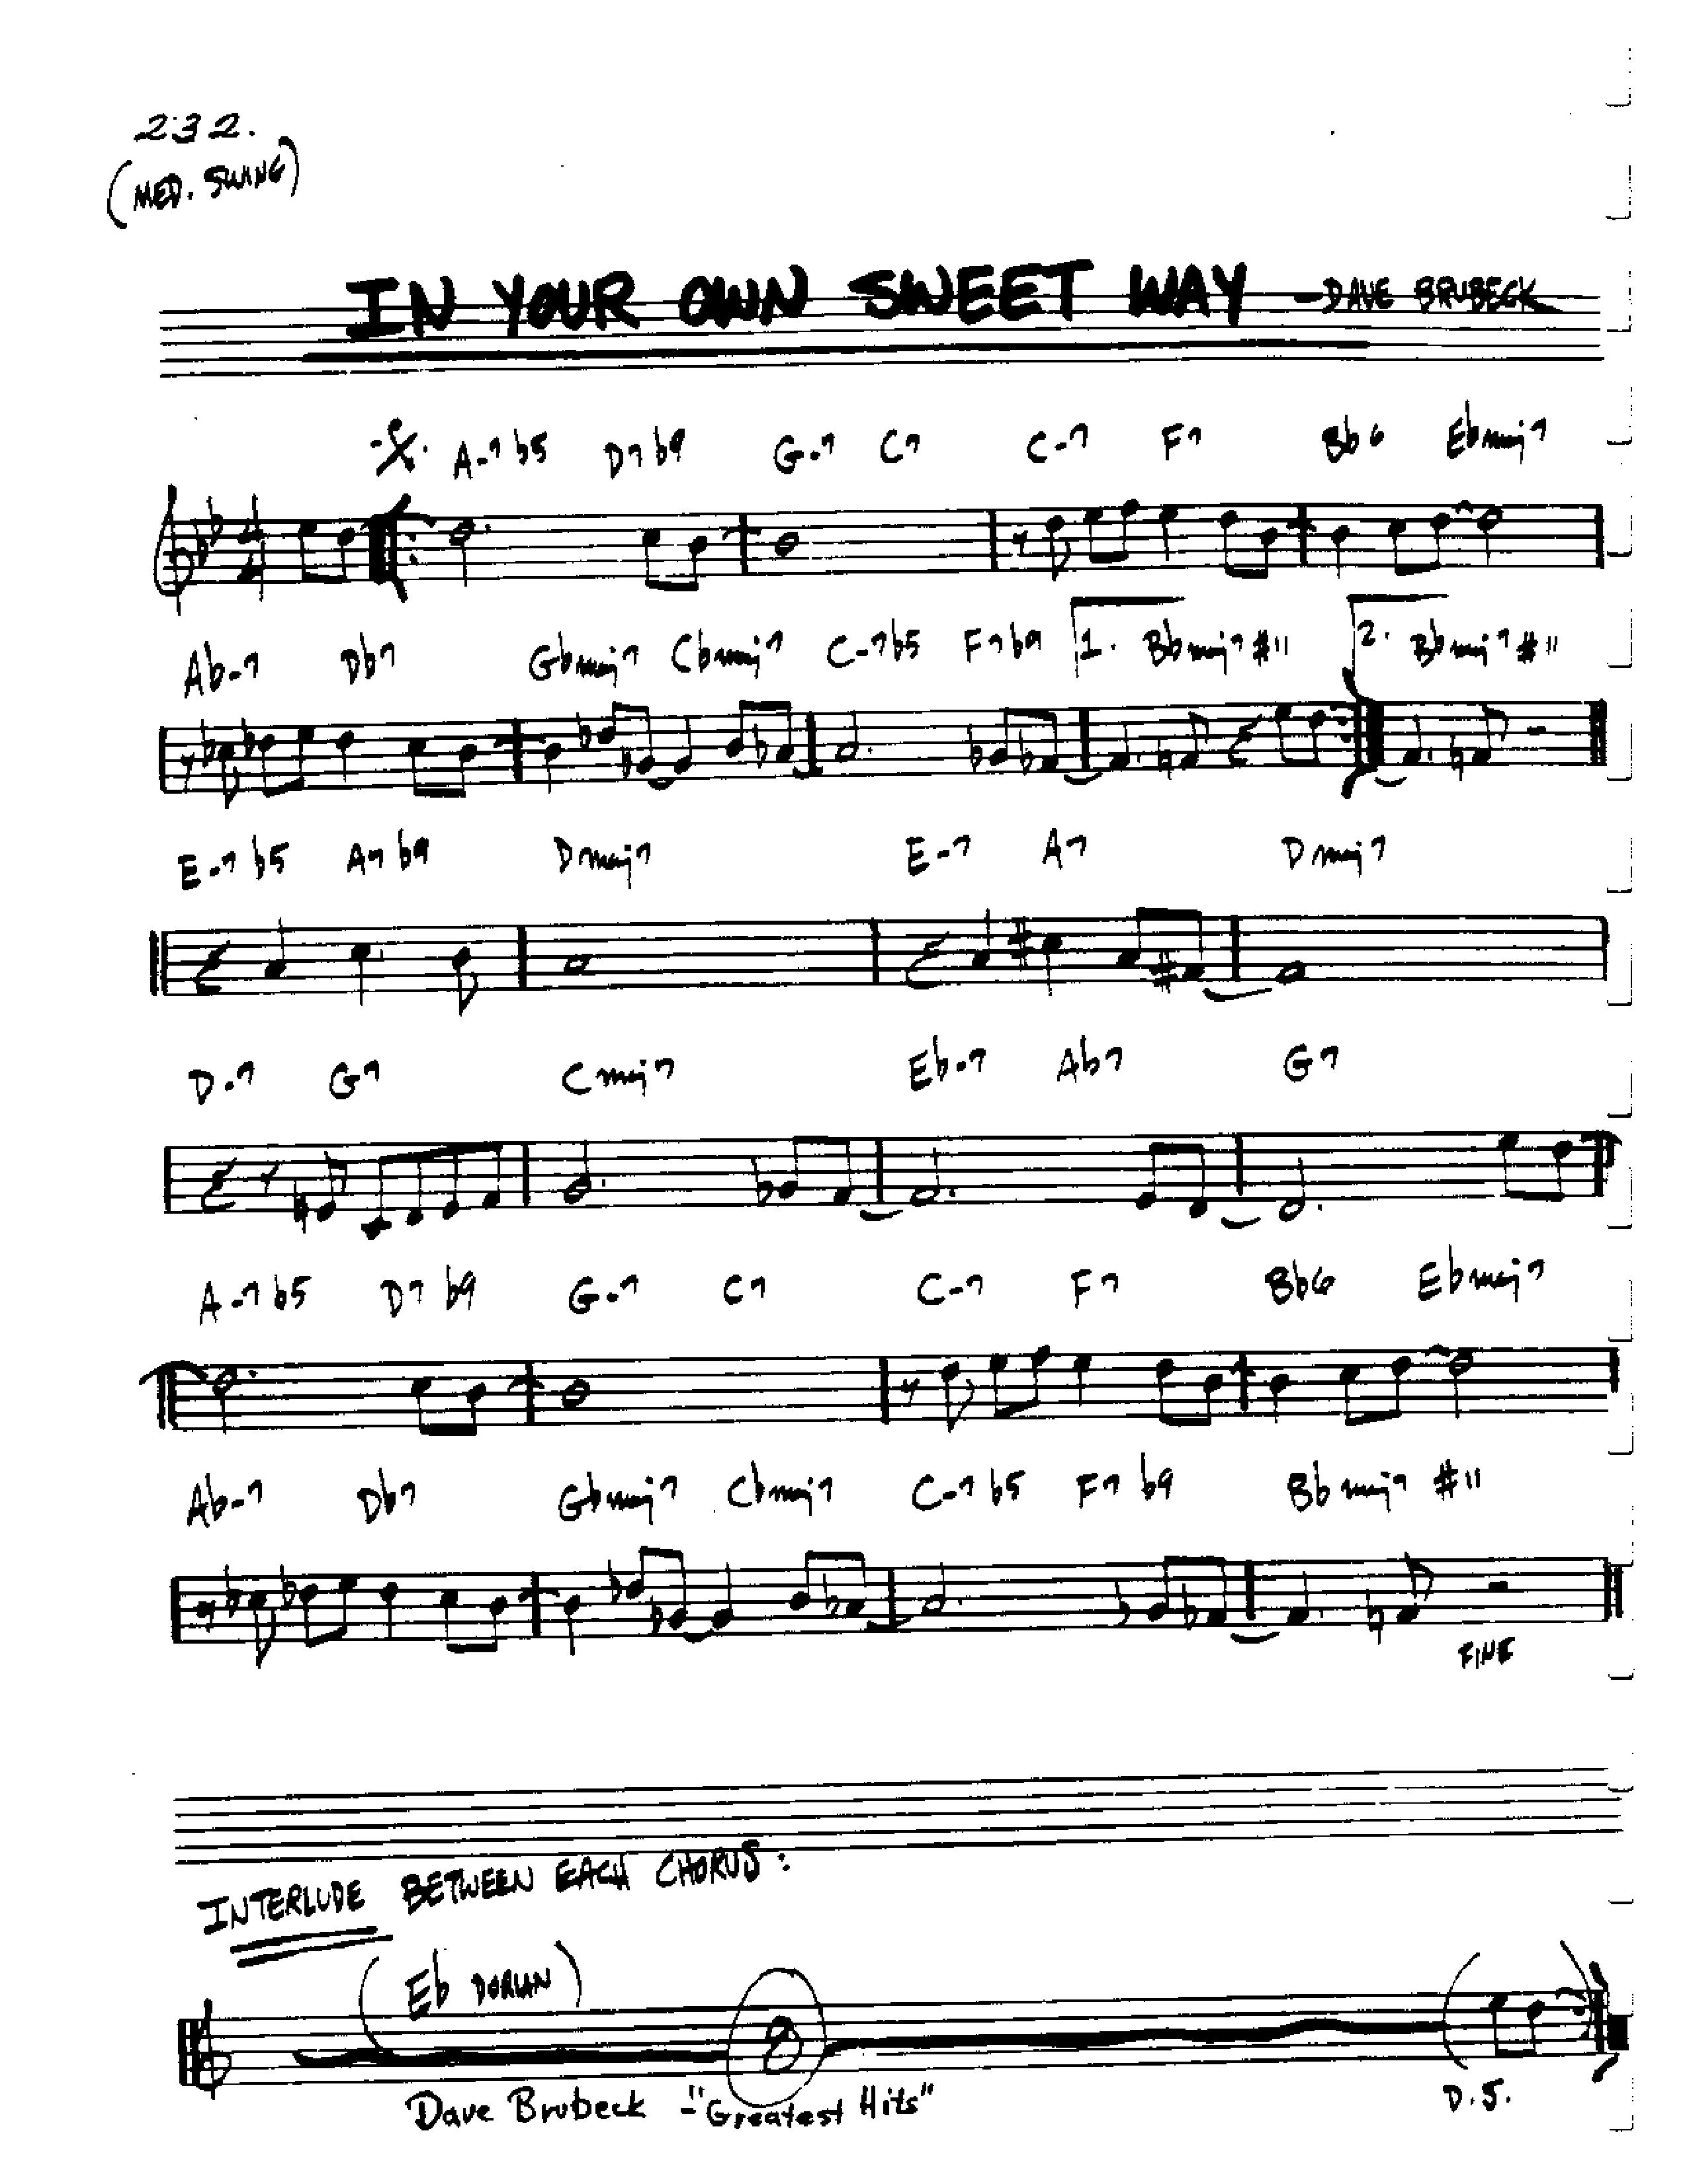 232.
(MED. SWING)
IN YOUR OWN SWEET WAY - DAVE BRUBECK
A-7b5 D7b9 G-7 C7 C-7 F7 Bb6 Ebmaj7
4
4
Ab-7 Db7 Gbmaj7 Cbmaj7 C-7b5 F7b9 1. Bbmaj7#11 2. Bbmaj7#11
E-7b5 A7b9 Dmaj7 E-7 A7 Dmaj7
D-7 G7 Cmaj7 Eb-7 Ab7 G7
A-7b5 D7b9 G-7 C7 C-7 F7 Bb6 Ebmaj7
Ab-7 Db7 Gbmaj7 Cbmaj7 C-7b5 F7b9 Bbmaj7#11
FINE
INTERLUDE BETWEEN EACH CHORUS:
(Eb DORIAN)
8
Dave Brubeck - "Greatest Hits"
D.S.